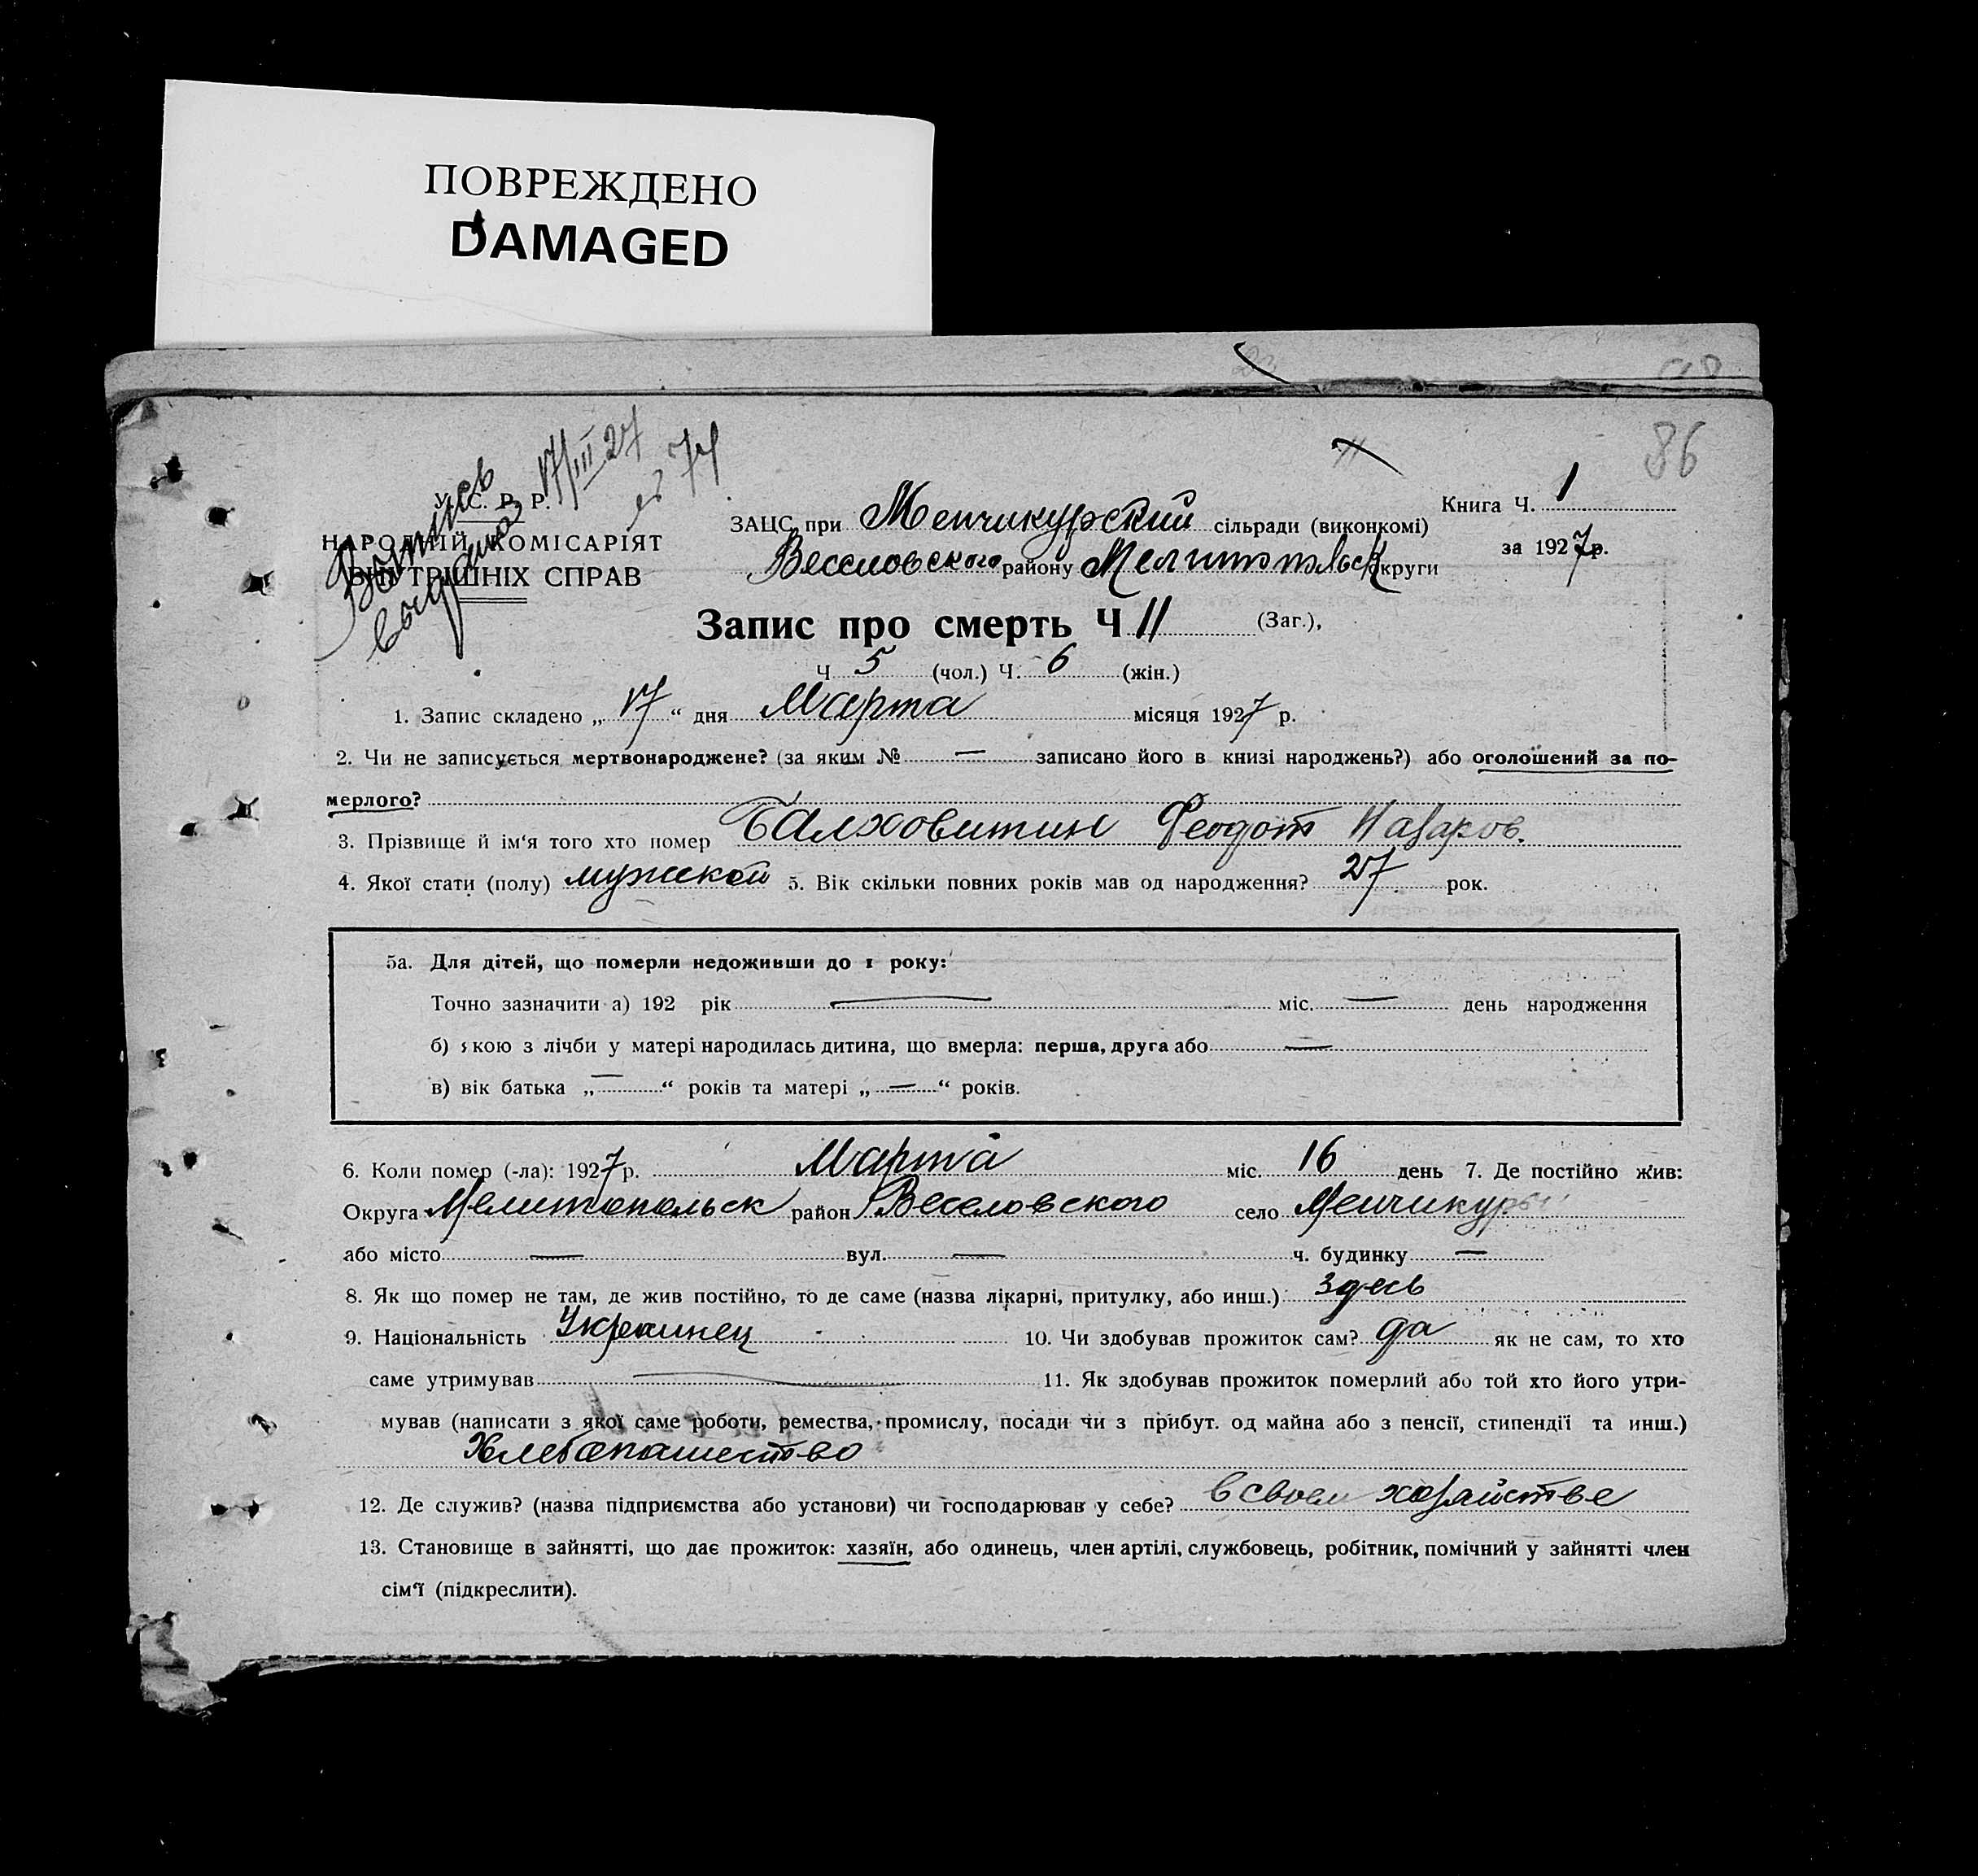 ПОВРЕЖДЕНО
DAMAGED
86
17/III 27
№ 74
Выпись
выдана
У. С. Р. Р.
НАРОДНІЙ КОМІСАРІЯТ
ВНУТРІШНІХ СПРАВ
Книга Ч. 1
за 1927 р.
ЗАЦС при Менчикурский сільради (виконкомі)
Веселовского району Мелитопольск округи
Запис про смерть Ч 11 (Заг.),
Ч 5 (чол.) Ч. 6 (жін.)
1. Запис складено „ 17 “ дня Марта місяця 1927 р.
2. Чи не записується мертвонароджене? (за яким № — записано його в книзі народжень?) або оголошений за по-
мерлого?
3. Прізвище й ім'я того хто помер Балховитин Феодот Назаров.
4. Якої стати (полу) мужской 5. Вік скільки повних років мав од народження? 27 рок.
5а. Для дітей, що померли недоживши до 1 року:
Точно зазначити а) 192 рік — міс. — день народження
б) якою з лічби у матері народилась дитина, що вмерла: перша, друга або —
в) вік батька „ — “ років та матері „ — “ років.
6. Коли помер (-ла): 1927 р. Марта міс. 16 день 7. Де постійно жив:
Округа Мелитопольск район Веселовского село Менчикуры
або місто — вул. — ч. будинку —
8. Як що помер не там, де жив постійно, то де саме (назва лікарні, притулку, або инш.) здесь
9. Національність Украинец 10. Чи здобував прожиток сам? да як не сам, то хто
саме утримував — 11. Як здобував прожиток померлий або той хто його утри-
мував (написати з якої саме роботи, ремества, промислу, посади чи з прибут. од майна або з пенсії, стипендії та инш.)
Хлебопашество
12. Де служив? (назва підприємства або установи) чи господарював у себе? в своем хозяйстве
13. Становище в зайнятті, що дає прожиток: хазяїн, або одинець, член артілі, службовець, робітник, помічний у зайнятті член
сім'ї (підкреслити).